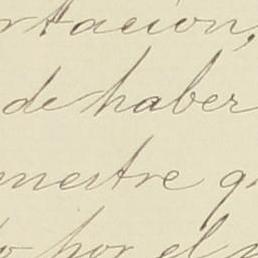 rtación,
de haber
mestre q
o por el